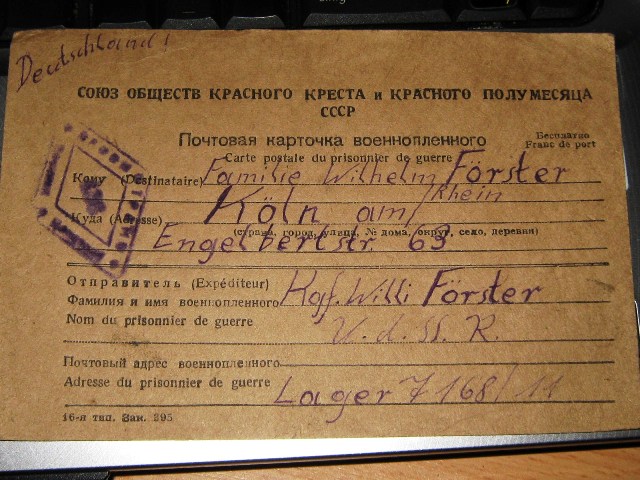 Deutschland!
СОЮЗ ОБЩЕСТВ КРАСНОГО КРЕСТА и КРАСНОГО ПОЛУМЕСЯЦА
СССР
Почтовая карточка военнопленного
Carte postale du prisonnier de guerre
Бесплатно
Franc de port
Кому (Destinataire) Familie Wilhelm Förster
Куда (Adresse) Köln am/Rhein
(страна, город, улица, № дома, округ, село, деревня)
Engelbertstr. 63
Отправитель (Expéditeur)
Фамилия и имя военнопленного Kgf. Willi Förster
Nom du prisonnier de guerre U.d.SS.R.
Почтовый адрес военнопленного
Adresse du prisonnier de guerre Lager 7168/11
16-я тип. Зак. 395